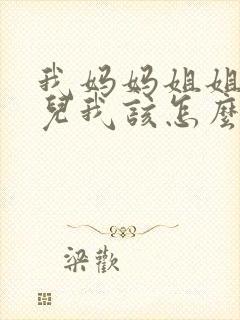 我妈妈姐姐
儿我该怎麼
梁歡